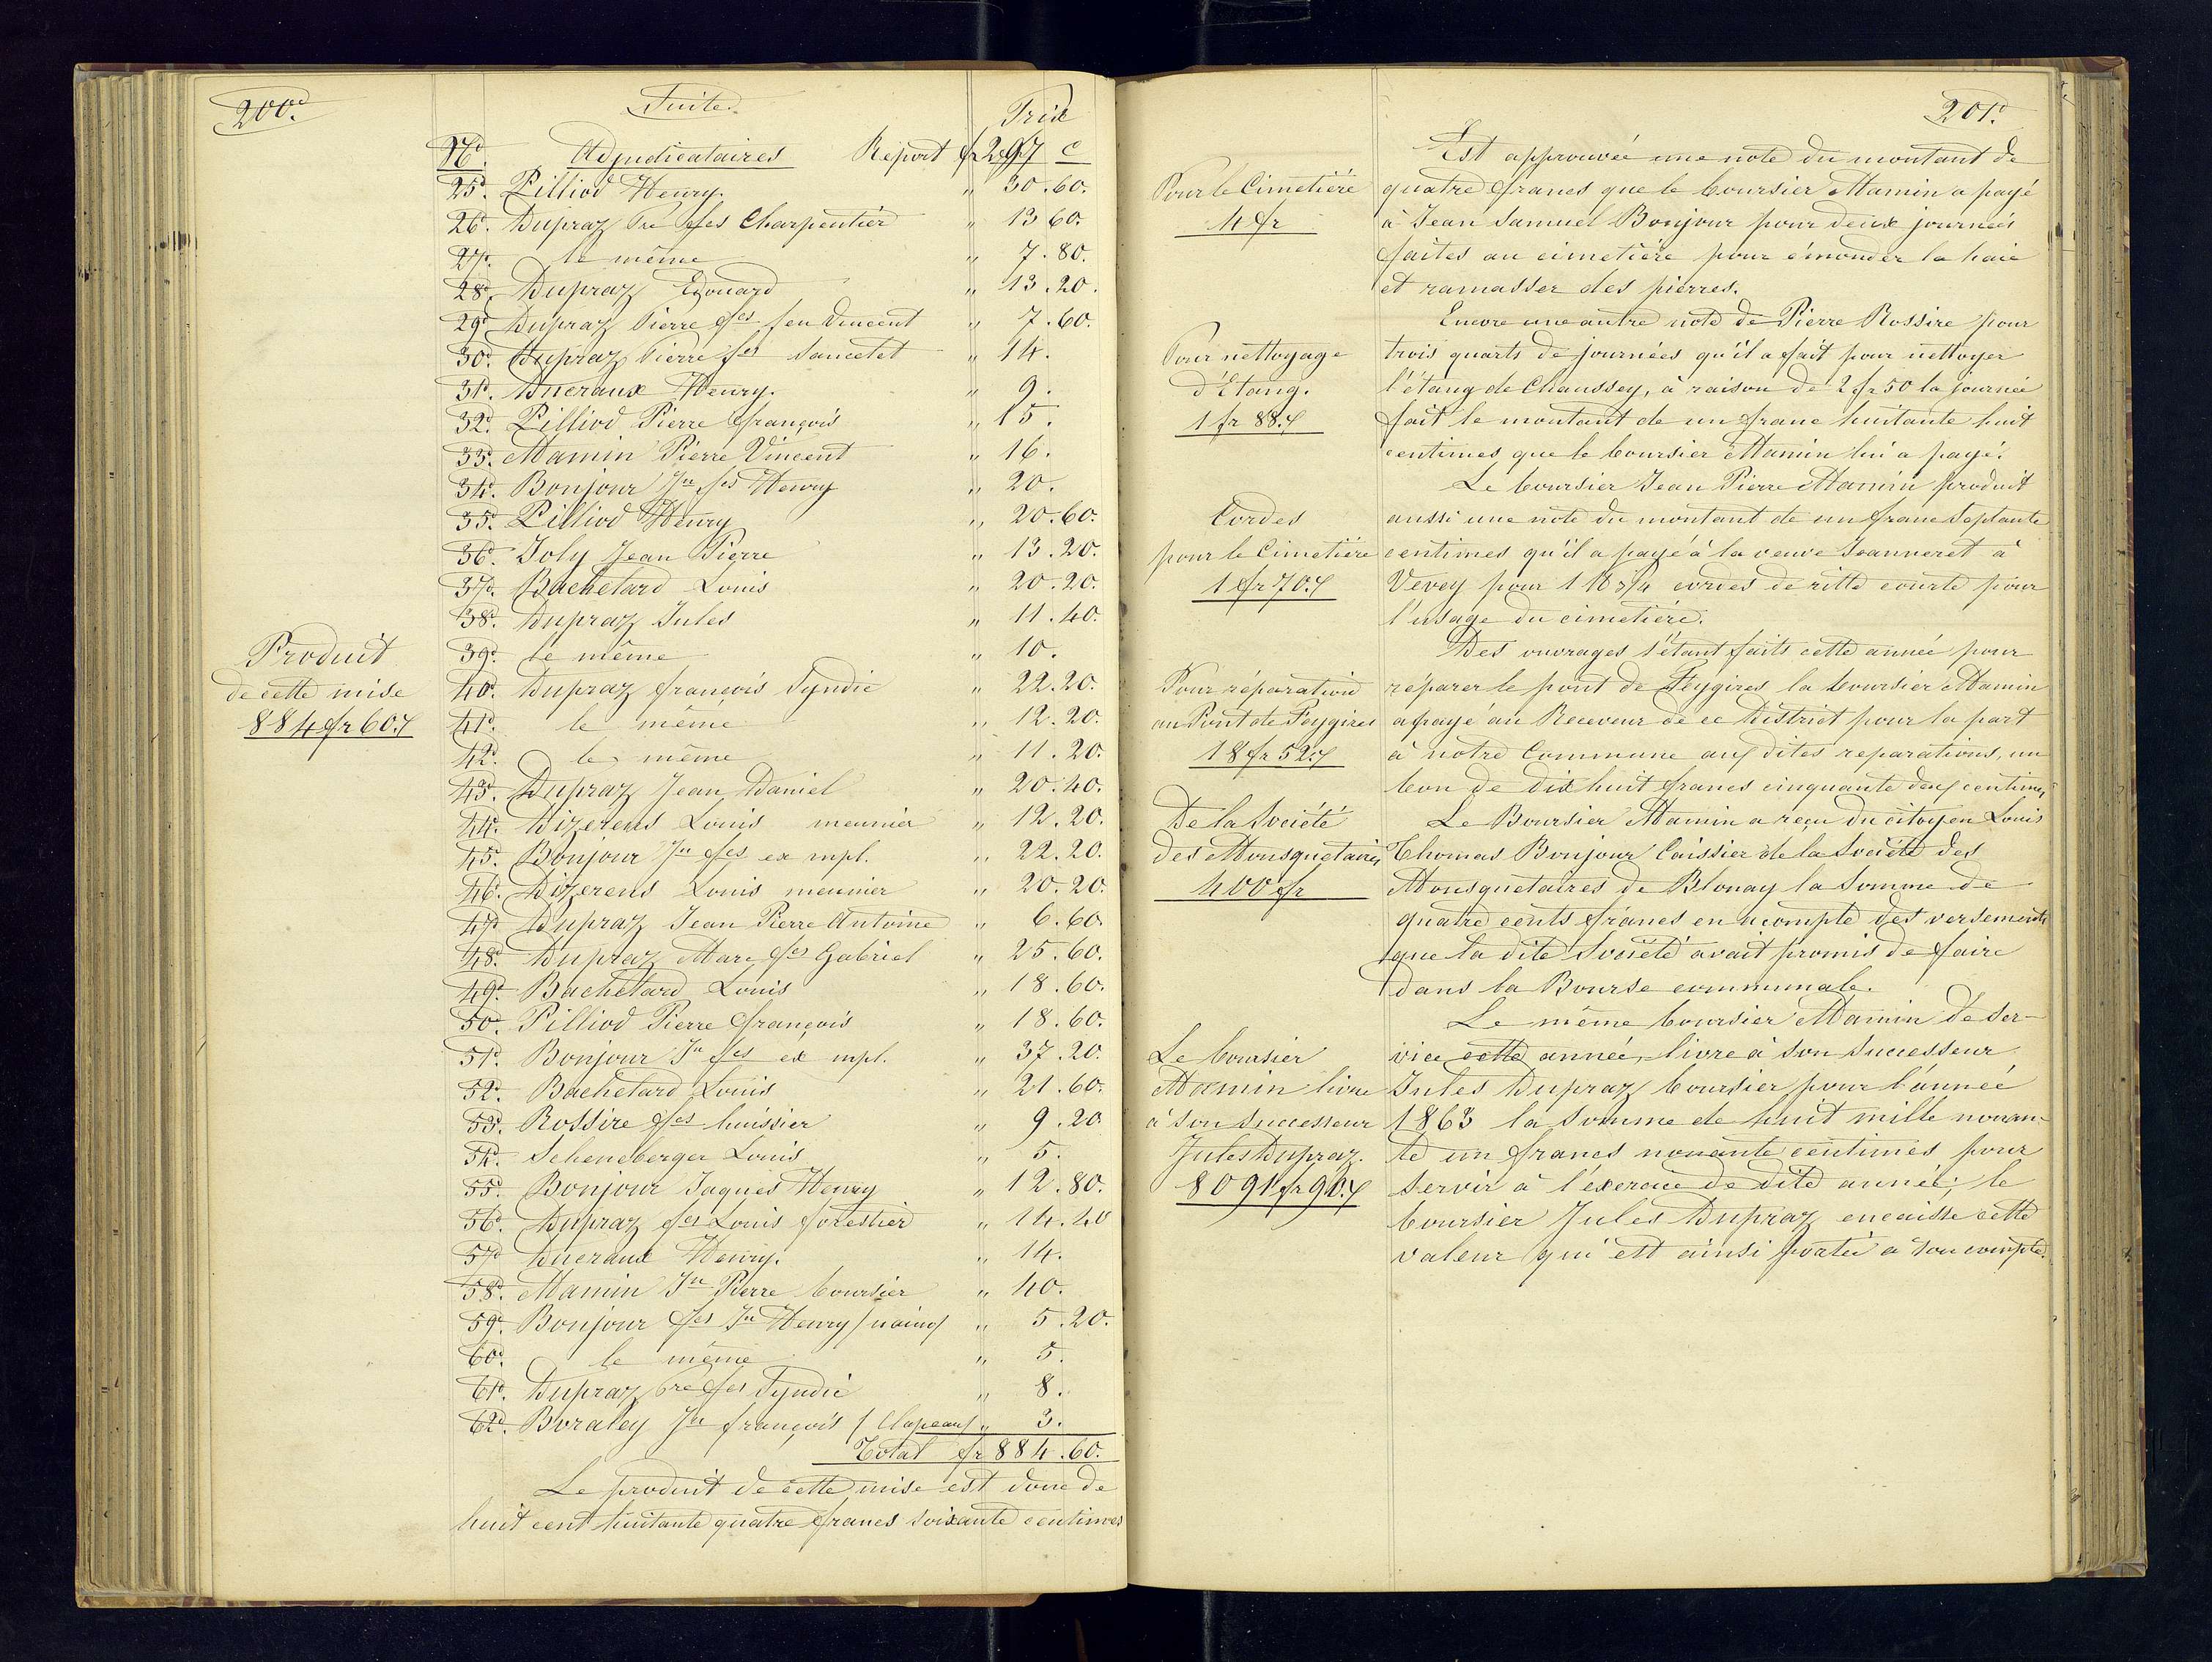 200.
Suite.
Prix
No. Adjudicataires Report fr 297 c
25. Pilliod Henry. " 30.60.
26. Dupraz Pre fçs Charpentier " 13 60.
27. le même " 7.80.
28. Dupraz Edouard " 13.20.
29. Dupraz Pierre fçs feu Vincent " 7.60.
30. Dupraz Pierre fçs Sancelet " 14.
31. Ducraux Henry. " 9.
32. Pilliod Pierre françois " 15.
33. Mamin Pierre Vincent " 16.
34. Bonjour Jn fçs Henry " 20.
35. Pilliod Henry " 20.60.
36. Joly Jean Pierre " 13.20.
37. Bachelard Louis " 20.20.
38. Dupraz Jules " 11.40.
39. le même " 10.
40. Dupraz françois Syndic " 22.20.
41. le même " 12.20.
42. le même " 11.20.
43. Dupraz Jean Daniel " 20.40.
44. Dizerens Louis meunier " 12.20.
45. Bonjour Jn fçs ex mpl. " 22.20.
46. Dizerens Louis meunier " 20.20.
47. Dupraz Jean Pierre Antoine " 6.60.
48. Dupraz Marc fçs Gabriel " 25.60.
49. Bachelard Louis " 18.60.
50. Pilliod Pierre françois " 18.60.
51. Bonjour Jn fçs ex mpl. " 37.20.
52. Bachelard Louis " 21.60.
53. Rossire fçs huissier " 9.20
54. Scheneberger Louis " 5.
55. Bonjour Jaques Henry " 12.80.
56. Dupraz fçs Louis forestier " 14.40
57. Ducraux Henry. " 14.
58. Mamin Jn Pierre boursier " 40.
59. Bonjour fçs Jn Henry " 5.20.
60. le même " 5.
61. Dupraz Pre fçs Syndic " 8.
62. Boraley Jn françois / Clapeaux / " 3.
Total fr 884.60.
Produit
de cette mise
884 fr 60.c
Le produit de cette mise est donc de
huit cent huitante quatre francs soixante centimes
201.
Pour le Cimetière
4 fr
Est approuvée une note du montant de
quatre francs que le boursier Mamin a payé
à Jean Samuel Bonjour pour deux journées
faites au cimetière pour émonder la haie
et ramasser des pierres.
Pour nettoyage
d'Etang.
1 fr 88.c
Encore une autre note de Pierre Rossire pour
trois quarts de journées qu'il a fait pour nettoyer
l'étang de Chaussey, à raison de 2 fr 50 la journée
fait le montant de un franc huitante huit
centimes que le boursier Mamin lui a payé.
Cordes
pour le Cimetière
1 fr 70.c
Le boursier Jean Pierre Mamin produit
aussi une note du montant de un franc septante
centimes qu'il a payé à la veuve Jeanneret à
Vevey pour 1 lb 3/4 cordes de ritte courte pour
l'usage du cimetière.
Pour réparation
au Pont de Feygires
18 fr 52.c
Des ouvrages s'étant faits cette année pour
réparer le pont de Feygires la boursier Mamin
a payé au Receveur de ce District pour la part
à notre Commune aux dites reparations, un
bon de dix huit francs cinquante deux centimes
De la Société
des Mousquetaires
400 fr
Le Boursier Mamin a reçu du citoyen Louis
Thomas Bonjour Caissier de la Société des
Mousquetaires de Blonay la somme de
quatre cents francs en acompte des versements
que la dite Société avait promis de faire
dans la Bourse communale.
Le boursier
Mamin livre
à son successeur
Jules Dupraz.
8091 fr 90.c
Le même boursier Mamin de ser-
vice cette année, livre à son successeur
Jules Dupraz boursier pour l'année
1863 la somme de huit mille nonan-
te un francs nonante centimes pour
servir à l'exercice de dite année; le
boursier Jules Dupraz encaisse cette
valeur qui est ainsi portée à son compte.